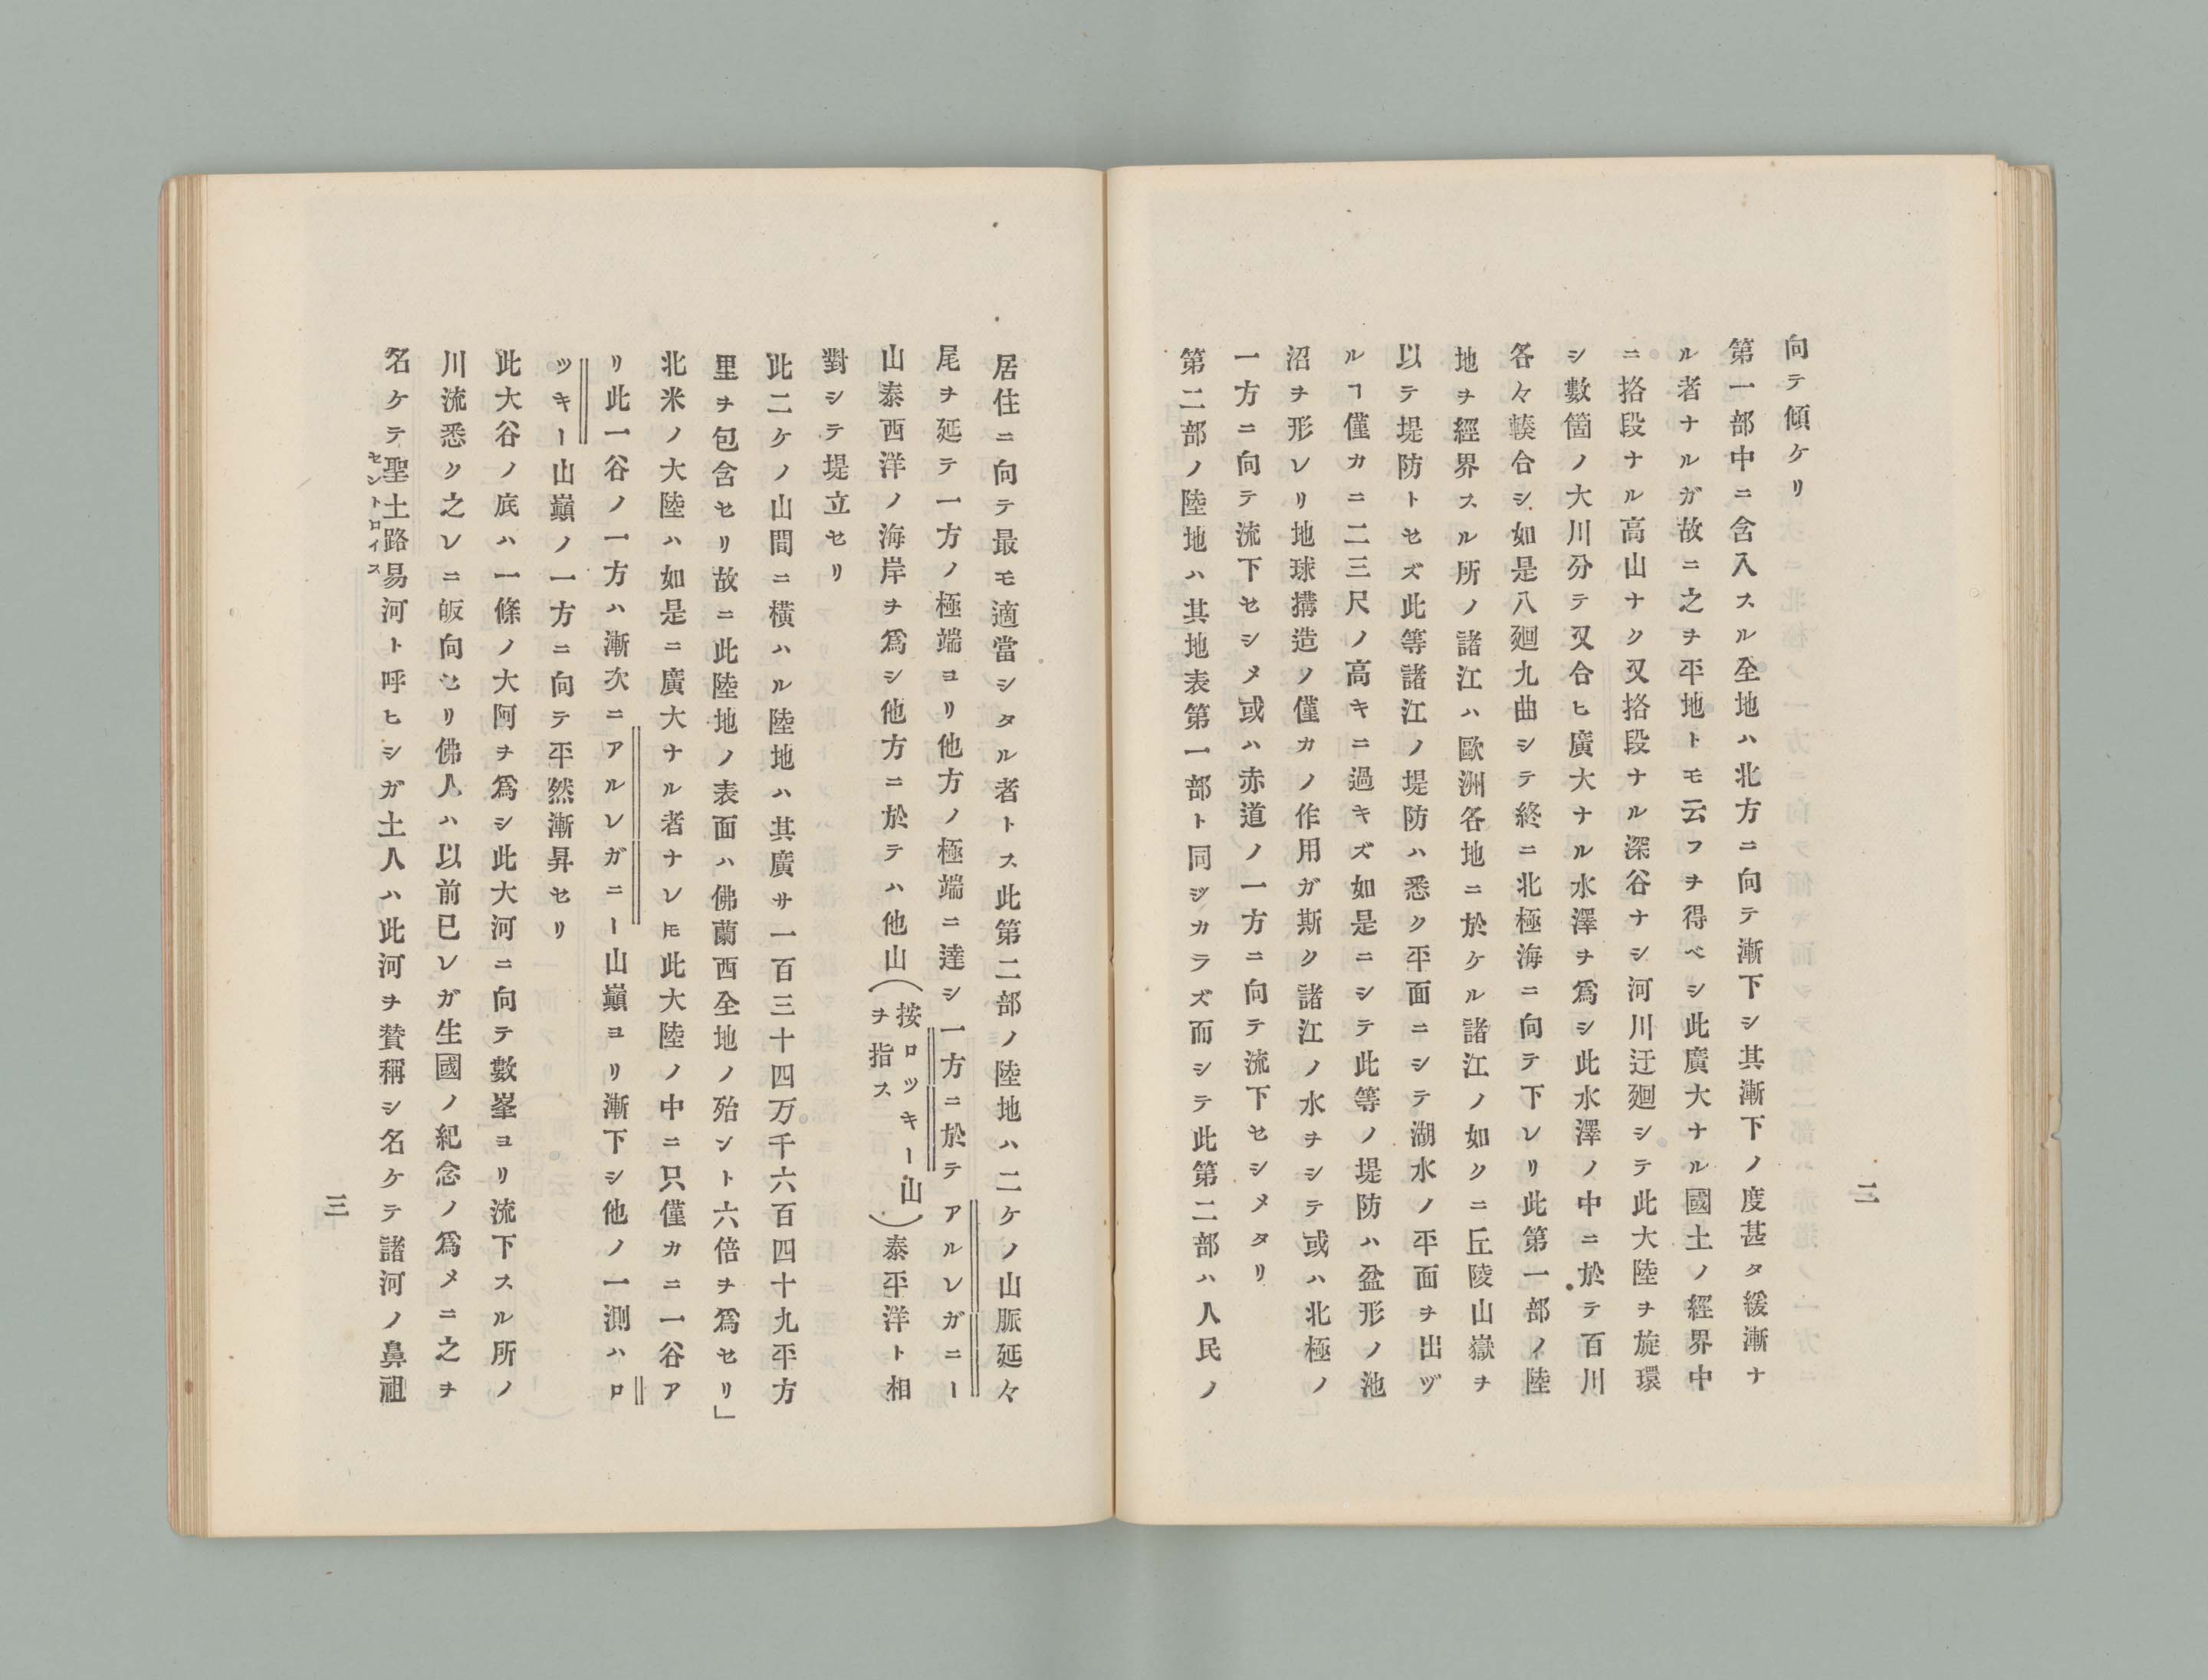 二
向テ傾ケリ
第一部中ニ含入スル全地ハ北方ニ向テ漸下シ其漸下ノ度甚タ緩漸ナ
ル者ナルガ故ニ之ヲ平地トモ云フヲ得ベシ此廣大ナル國土ノ經界中
ニ挌段ナル高山ナク又挌段ナル深谷ナシ河川迂廻シテ此大陸ヲ旋環
シ數箇ノ大川分テ又合ヒ廣大ナル水澤ヲ爲シ此水澤ノ中ニ於テ百川
各々輳合シ如是八廻九曲シテ終ニ北極海ニ向テ下レリ此第一部ノ陸
地ヲ經界スル所ノ諸江ハ歐洲各地ニ於ケル諸江ノ如クニ丘陵山嶽ヲ
以テ堤防トセズ此等諸江ノ堤防ハ悉ク平面ニシテ湖水ノ平面ヲ出ヅ
ルヿ僅カニ二三尺ノ高キニ過キズ如是ニシテ此等ノ堤防ハ盆形ノ池
沼ヲ形レリ地球搆造ノ僅カノ作用ガ斯ク諸江ノ水ヲシテ或ハ北極ノ
一方ニ向テ流下セシメ或ハ赤道ノ一方ニ向テ流下セシメタリ
第二部ノ陸地ハ其地表第一部ト同ジカラズ而シテ此第二部ハ人民ノ
居住ニ向テ最モ適當シタル者トス此第二部ノ陸地ハ二ケノ山脈延々
尾ヲ延テ一方ノ極端ヨリ他方ノ極端ニ達シ一方ニ於テアルレガニー
山泰西洋ノ海岸ヲ爲シ他方ニ於テハ他山(按ロツキー山ヲ指ス)泰平洋ト相
對シテ堤立セリ
此二ケノ山間ニ横ハル陸地ハ其廣サ一百三十四万千六百四十九平方
里ヲ包含セリ故ニ此陸地ノ表面ハ佛蘭西全地ノ殆ント六倍ヲ爲セリ」
北米ノ大陸ハ如是ニ廣大ナル者ナレ𪜈此大陸ノ中ニ只僅カニ一谷ア
リ此一谷ノ一方ハ漸次ニアルレガニー山巓ヨリ漸下シ他ノ一測ハロ
ツキー山巓ノ一方ニ向テ平然漸昇セリ
此大谷ノ底ハ一條ノ大阿ヲ爲シ此大河ニ向テ數峯ヨリ流下スル所ノ
川流悉ク之レニ皈向セリ佛人ハ以前已レガ生國ノ紀念ノ爲メニ之ヲ
名ケテ聖土路易河ト呼ヒシガ土人ハ此河ヲ賛稱シ名ケテ諸河ノ鼻祖
セントロイス
三